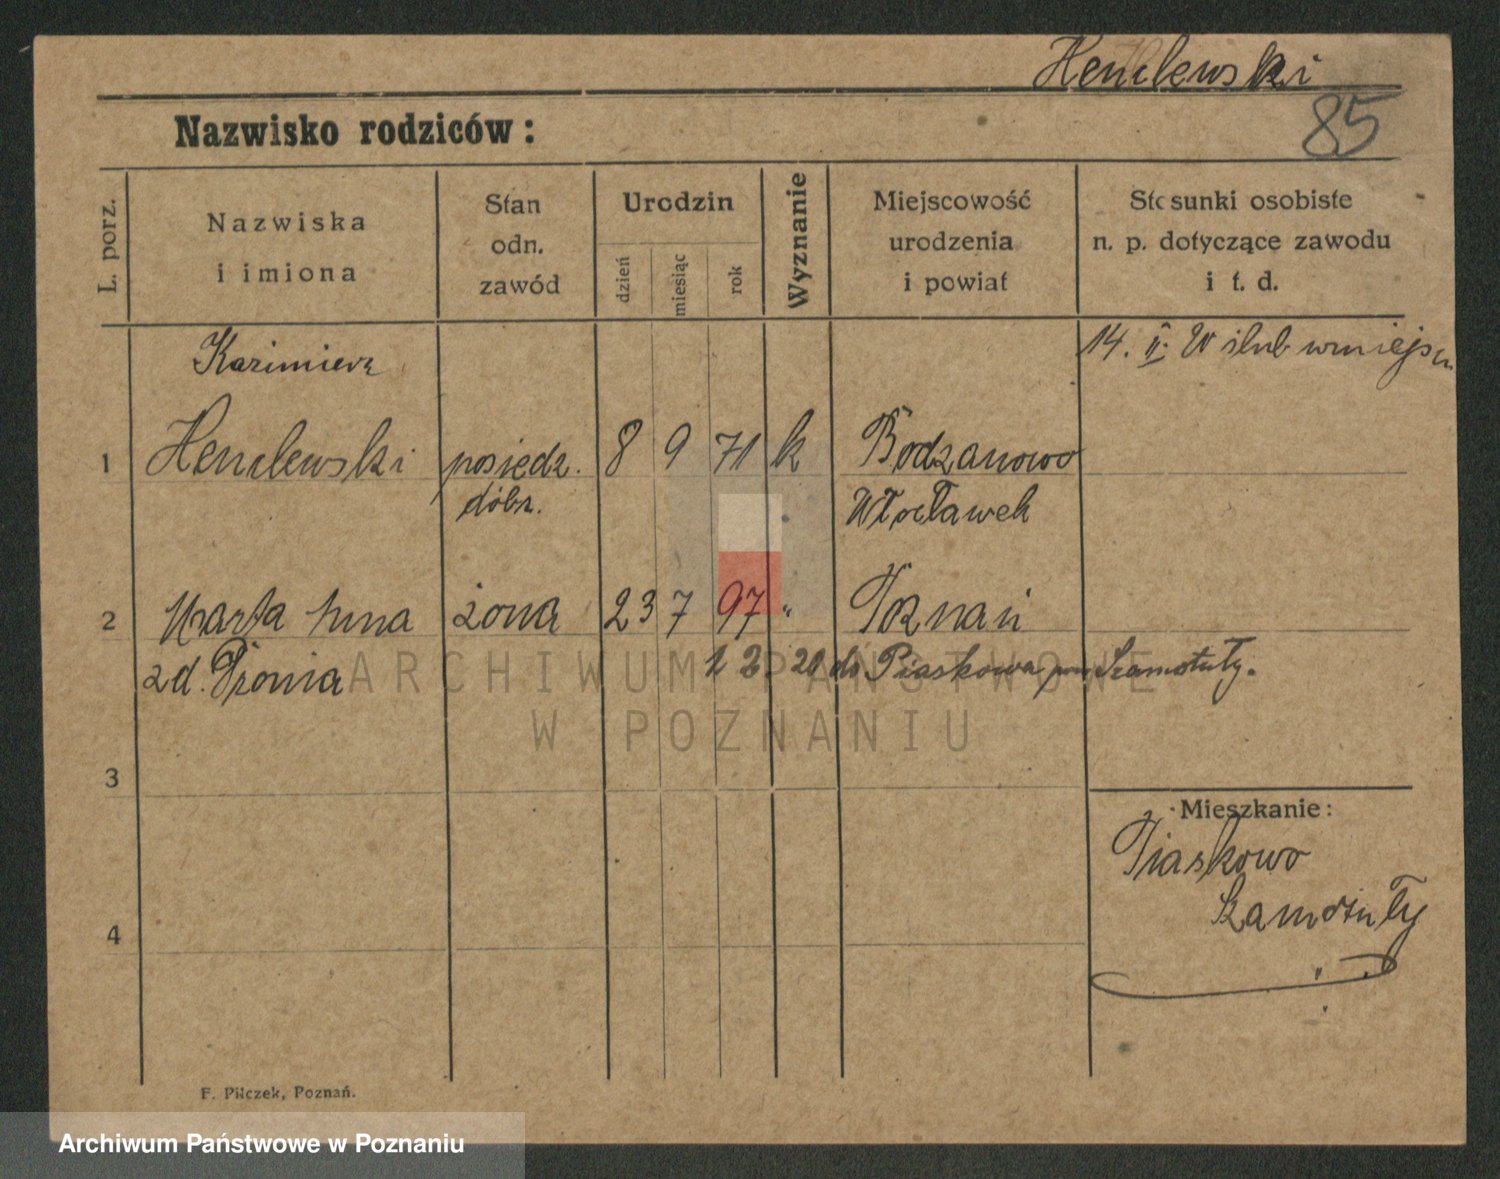 Hendewski
85
Nazwisko rodziców:
L. porz.
Nazwiska
i imiona
Stan
odn.
zawód
Urodzin
dzień
miesiąc
rok
Wyznanie
Miejscowość
urodzenia
i powiat
Stosunki osobiste
n. p. dotyczące zawodu
i t. d.
Kazimierz
14. II. ślub
1 Hendewski posiedz. 8 9 71 k Bodzanowo
dóbr. Włocławek
2 Marta Anna żona 23 7 97 " Poznań
zd. Pionia 20 do Piaskowa Szamotuły.
ARCHIWUM PAŃSTWOWE
W POZNANIU
3
Mieszkanie:
Piaskowo
Szamotuły
4
F. Pilczek, Poznań.
Archiwum Państwowe w Poznaniu